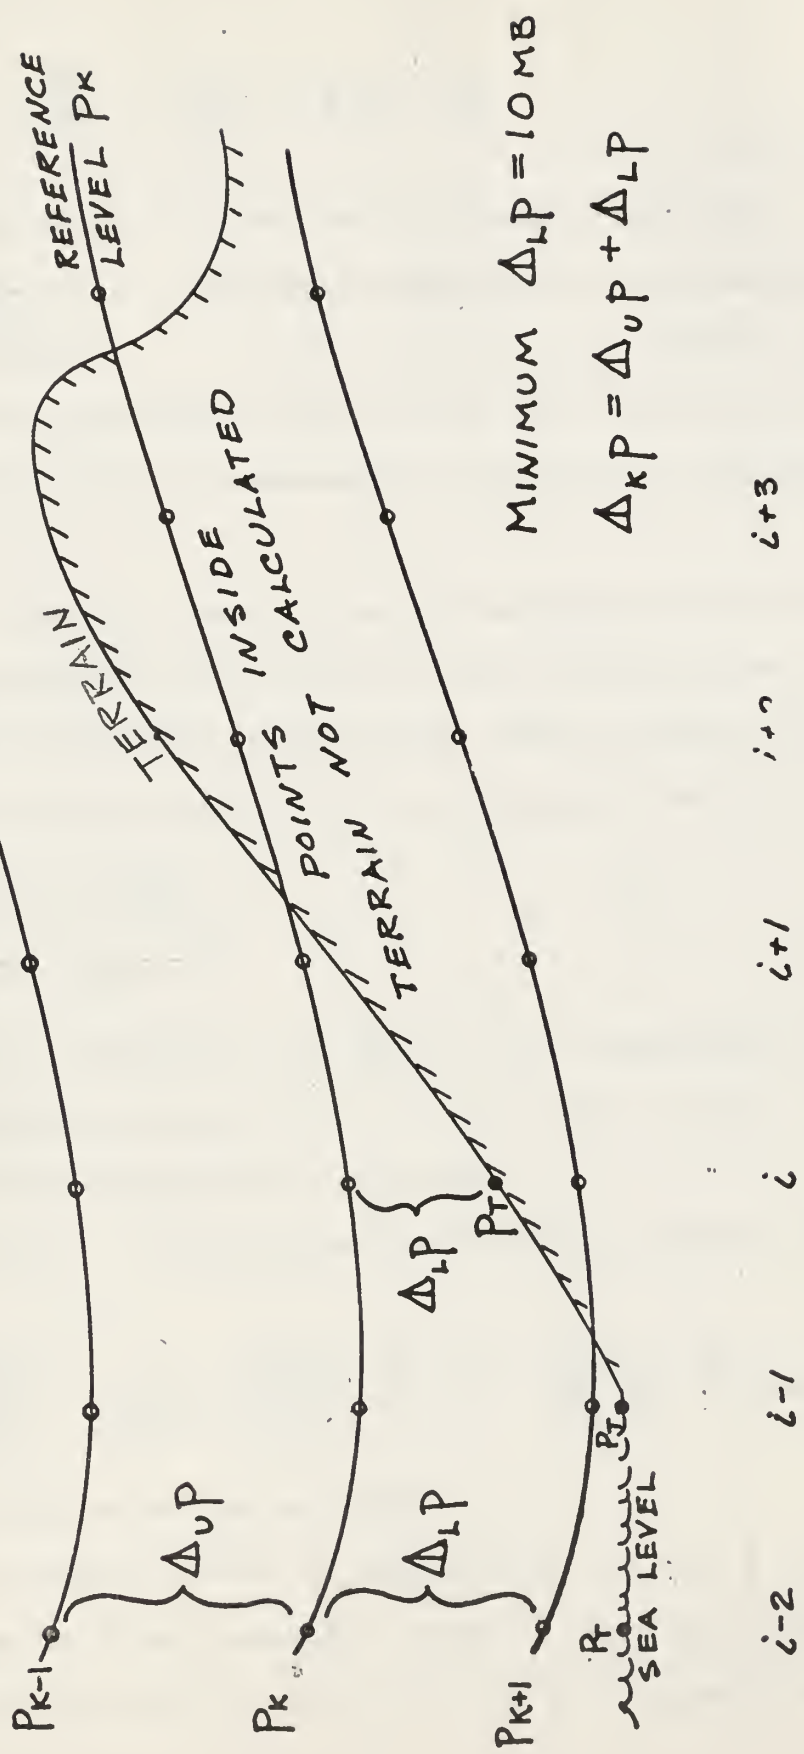 P_K-1
Δ_U P
P_K
Δ_L P
P_K+1
P_T
SEA LEVEL
P_T
Δ_L P
P_T
TERRAIN
POINTS INSIDE
TERRAIN NOT CALCULATED
REFERENCE
LEVEL P_K
MINIMUM Δ_L P = 10 MB
Δ_K P = Δ_U P + Δ_L P
i-2
i-1
i
i+1
i+3